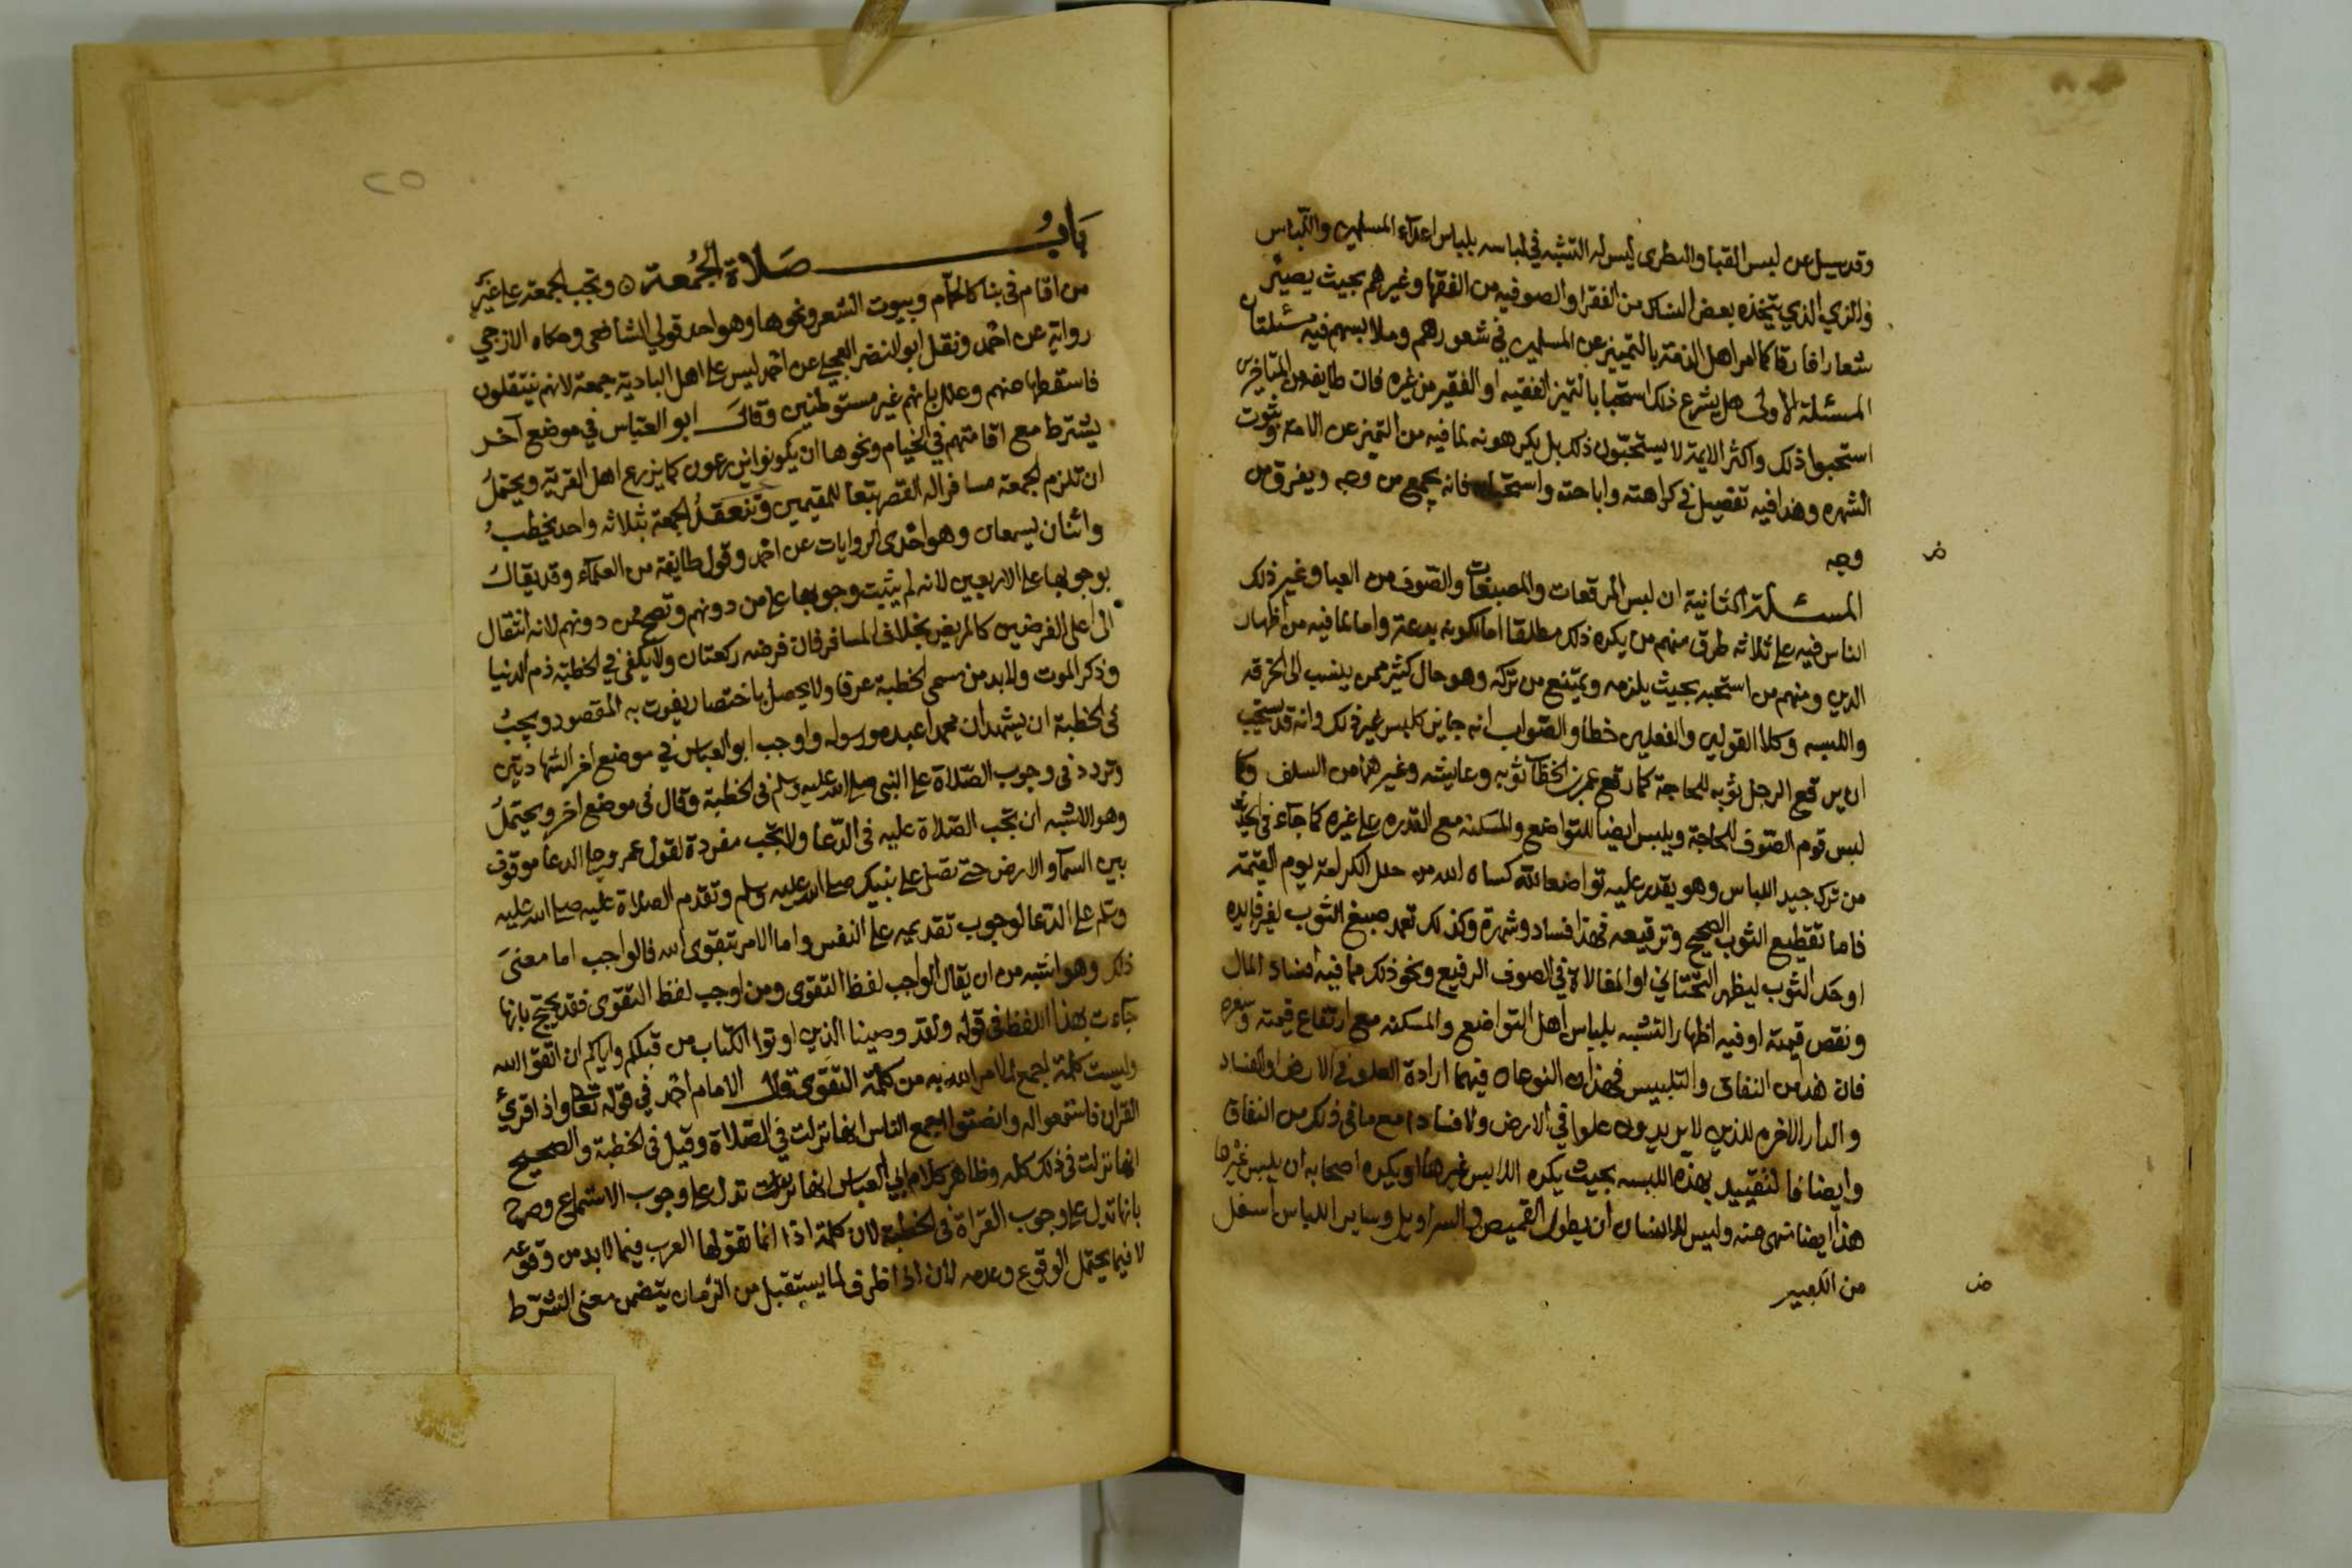 وقد سيل عن لبس القبا والنظرى ليس له التشبه في لباسه بلباس اعدآء المسلمين والكبراس
والزي الذي يتخذه بعض النساك من الفقرا والصوفيه من الفقها وغيرهم بحيث يصير
شعارا فارقا كما امر اهل الذمة بالتمييز عن المسلمين في شعورهم وملابسهم فيه مسئلتان
المسئلة الاولى هل يشرع ذلك استحبابا لتميز الفقيه او الفقير من غيره فان طايفه من المتاخرين
استحبوا ذلك واكثر الايمة لا يستحبون ذلك بل يكرهونه لما فيه من التميز عن الامة وثوب
الشهره وهذا فيه تفصيل في كراهته واباحته واستحبابه فانه يجمع من وجه ويفرق من
وجه
المسئلة الثانية ان لبس المرقعات والمصبغات والصوف من العبا وغير ذلك
الناس فيه على ثلاثه طرق منهم من يكره ذلك مطلقا اما لكونه بدعة واما لما فيه من اظهار
الدين ومنهم من استحبه بحيث يلزمه ويمتنع من تركه وهو حال كثير ممن ينسب الى الخرقه
واللبسه وكلا القولين والفعلين خطا والصواب انه جايز كلبس غير ذلك وانه قد يستحب
ان يرقع الرجل ثوبه للحاجة كما رقع عمر بن الخطاب ثوبه وعايشه وغيرهما من السلف وكما
لبس قوم الصوف للحاجة ويلبس ايضا للتواضع والمسكنه مع القدره على غيره كما جآء في الحديث
من ترك جيد اللباس وهو يقدر عليه تواضعا لله كساه الله من حلل الكرامة يوم القيمة
فاما تقطيع الثوب الصحيح وترقيعه فهذا فساد وشهرة وكذلك تعمد صبغ الثوب لغير فايده
او حك الثوب ليظهر التحتاني او المغالاة في الصوف الرفيع ونحو ذلك مما فيه افساد المال
ونقص قيمته او فيه اظهار التشبه بلباس اهل التواضع والمسكنه مع ارتفاع قيمته وسعره
فان هذا من النفاق والتلبيس فهذان النوعان فيهما ارادة العلو في الارض او الفساد
والدار الاخره للذين لا يريدون علوا في الارض ولا فسادا مع ما في ذلك من النفاق
وايضا فالتقييد بهذه اللبسه بحيث يكره اللابس غيرها او يكره اصحابه ان يلبس غيرها
هذا ايضا منهى عنه وليس للانسان ان يطول القميص والسراويل وساير اللباس اسفل
من الكعبين
٢٥
باب صلاة الجمعة ۞ وتجب الجمعة على غير
من اقام في بنا كالخيام وبيوت الشعر ونحوها وهو احد قولي الشافعى وحكاه الازجي
رواية عن احمد ونقل ابو النضر العجلي عن احمد ليس على اهل البادية جمعة لانهم ينتقلون
فاسقطها عنهم وعلل بانهم غير مستوطنين وقال ابو العباس في موضع آخر
يشترط مع اقامتهم في الخيام ونحوها ان يكونوا يزرعون كما يزرع اهل القرية ويحتمل
ان تلزم الجمعة مسافرا له القصر تبعا للمقيمين وتنعقد الجمعة بثلاثه واحد يخطب
واثنان يسمعان وهو احدى الروايات عن احمد وقول طايفة من العلماء وقد يقال
بوجوبها على الاربعين لانه لم يثبت وجوبها على من دونهم وتصح ممن دونهم لانه انتقال
الى اعلى الفرضين كالمريض بخلاف المسافر فان فرضه ركعتان ولا يكفي في الخطبة ذم الدنيا
وذكر الموت ولا بد من مسمى الخطبة عرفا ولا يحصل باختصار يفوت به المقصود ويجب
في الخطبة ان يشهد ان محمدا عبده ورسوله واوجب ابو العباس في موضع اخر الشهادتين
وتردد في وجوب الصلاة على النبي صلى الله عليه وسلم في الخطبة وقال في موضع اخر ويحتمل
وهو الاشبه ان تجب الصلاة عليه في الدعا ولا تجب مفردة لقول عمر وعلي الدعا موقوف
بين السمآ والارض حتى تصلي على نبيك صلى الله عليه وسلم وتقدم الصلاة عليه صلى الله عليه
وسلم على الدعا لوجوب تقديمه على النفس واما الامر بتقوى الله فالواجب اما معنى
ذلك وهو اشبه من ان يقال الواجب لفظ التقوى ومن اوجب لفظ التقوى فقد يحتج بانها
جآءت بهذا اللفظ في قوله ولقد وصينا الذين اوتوا الكتاب من قبلكم واياكم ان اتقوا الله
وليست كلمة اجمع لما امر الله به من كلمة التقوى قال الامام احمد في قوله تعالى واذا قرئ
القران فاستمعوا له وانصتوا اجمع الناس انها نزلت في الصلاة وقيل في الخطبة والصحيح
انها نزلت في ذلك كله وظاهر كلام ابي العباس انها تدل على وجوب الاستماع وصرح
بانها تدل على وجوب القراة في الخطبة لان كلمة اذا انما تقولها العرب فيما لا بد من وقوعه
لا فيما يحتمل الوقوع وعدمه لان اذا ظرف لما يستقبل من الزمان يتضمن معنى الشرط